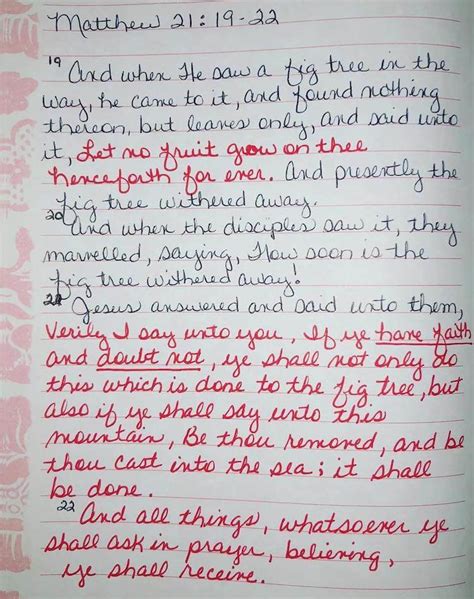 Matthew 21:19-22
19 And when He saw a fig tree in the
way, he came to it, and found nothing
thereon, but leaves only, and said unto
it, Let no fruit grow on thee
henceforth for ever. And presently the
fig tree withered away.
20 And when the disciples saw it, they
marvelled, saying, How soon is the
fig tree withered away!
21 Jesus answered and said unto them,
Verily I say unto you, If ye have faith
and doubt not, ye shall not only do
this which is done to the fig tree, but
also if ye shall say unto this
mountain, Be thou removed, and be
thou cast into the sea; it shall
be done.
22 And all things, whatsoever ye
shall ask in prayer, believing,
ye shall receive.